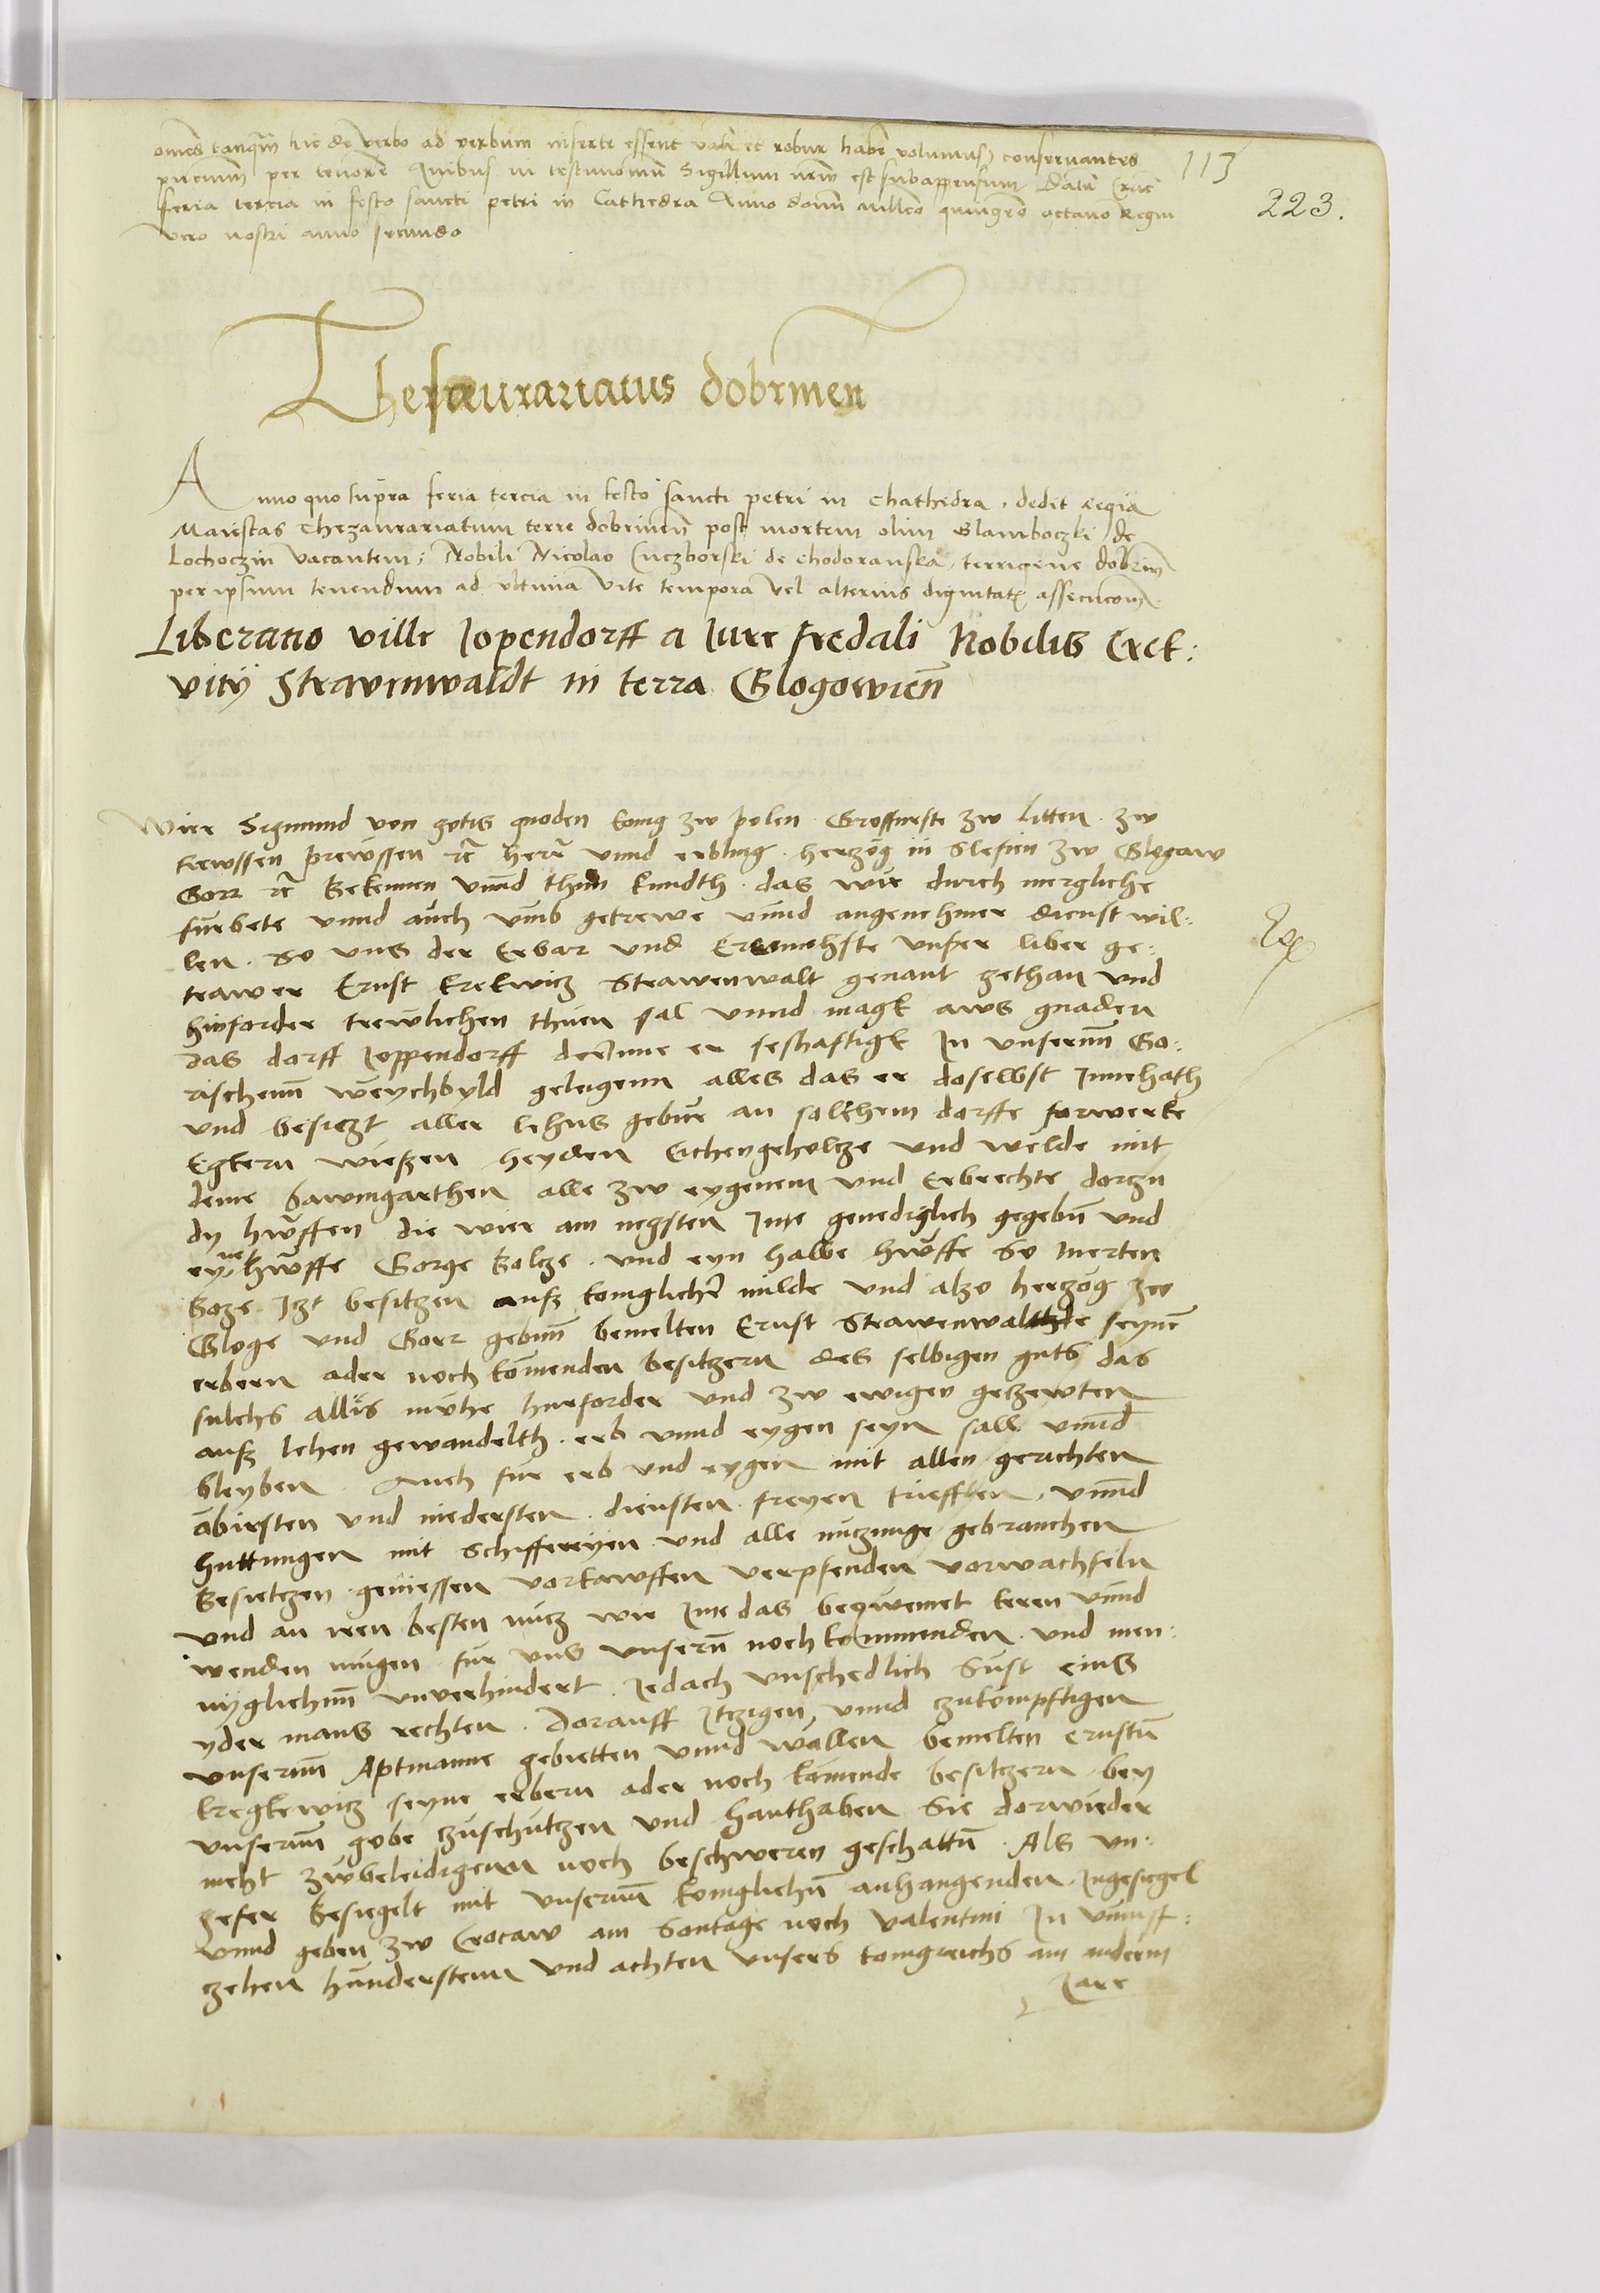 omnes tanquam hic de verbo ad verbum inserte essent vale et robur habere volumus conservantes
per tenorem Quibus in testimonium Sigillum nrm est subappensum Datu Crac
feria tercia in festo sancti petri in Cathedra Anno domi millēo quingeō octavo Regni
vero nostri anno secundo
113
223.
Thesaurariatus dobrinen
Anno quo supra feria tercia in festo sancti petri in chathedra, dedit Regia
Maiestas Thezaurariatum terre dobrinen post mortem olim Glamboczki de
Lochoczin vacantem, Nobili Nicolao Cuczborski de chodoranska, terrigene dobrin
per ipsum tenendum ad ultima vite tempora vel alterius dignitat assecucom
Liberatio ville Jopendorff a Iure feodali Nobilis Crek:
vity Stravinwaldt in terra Glogowien
Wier Sigmund von gotis gnoden konig zw polen Grosfurste zw Litten zw
Rewssen prewssen rc herr unnd erbling herzog in Slesien zw Glogaw
Gorr rc Bekennen unnd thun kundth das wir durch mergliche
furbete unnd auch umb getrewe unnd angenehmer dienst wil:
len. So uns der Erbar und unser liber ge:
trawer Ernst Krekwicz Strawenwalt genant gethan und
hinforder trewlichen thuen sal unnd magk aws gnaden
das dorff Joppendorff er In unsernn Go:
rischenn weychbyld gelegenn alles das er doselbst Innehath
und besiczt aller lehns gebur an solchem dorffe forwerke
Egkern wießen heyden Eichengeholcze und welde mit
deme bawmgarthen alle zw eygenem und Erbrechte dorzu
dy hwffen die wier am negsten Ime genediglich gegebn und
eyne hwffe Gorge Bolcze und eyn halbe hwffe So Merten
Boze Izt besitzen auß koniglicher milde und alzo herzog zw
Gloge und Gorr gebenn bemelten Ernst Strawenwaltte seynē
erbern ader noch komenden besitzern des selbigen guts das
sulchs allis hinforder und zw ewigen geczewten
auß lehen gewandelth erb unnd eygen seyn sall unnd
bleyben Auch fur erb und eygen mit allen gerichten
abirsten und niedersten diensten freyen triefften, unnd
huttungen mit Schiffereyen und alle nutzunge gebrauchen
Besietzen geniessen vorkawffen verpfenden vorwachseln
und an iren besten nucz wie Ime das beqwemet keren unnd
wenden mugen fur uns unsern noch kommenden und men:
niglichenn unverhindert Jedach unschedlich Sust eins
yder mans rechten. Dorauff Itzigen unnd zukompftigen
unsernn Aptmanne gebietten unnd wallen bemelten ernstn
kregkewicz seyne erbern ader noch komende besitzern bey
unsernn gobe zuschutzen und hanthaben Sie dorwieder
nicht zwbeleidigenn noch beschweren geschattn Als un:
gefer besiegelt mit unsernn koniglichn anhangenden Ingesiegel
unnd geben zw Crocaw am Sontage noch Valentini In
zehen hunderstenn und achten unsers konigreichs am andern
Jare